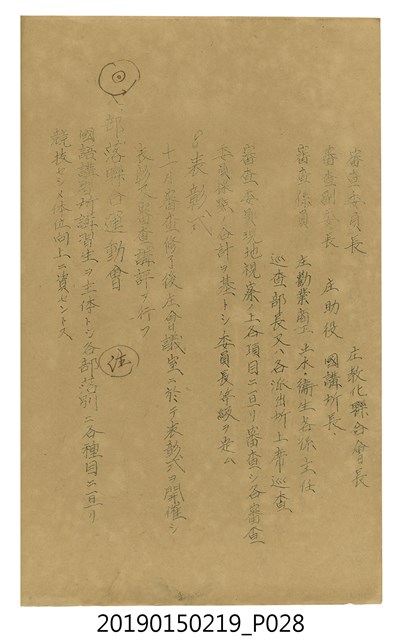 審査委員長　庄教化聯合會長
審査副委長　庄助役　國講所長
審査係員　庄勸業商工　土木・衛生各係主任
巡査部長又ハ各派出所上席巡査
審査委員現地視察ノ上各項目ニ亘リ審査シ各審査
委員採点ノ合計ヲ基トシ委員長等級ヲ定ム
8 表彰式
十一、審査終了後庄會議室ニ於テ表彰式ヲ開催シ
表彰並審査講評ヲ行フ
部落聯合運動會
國語講習所講習生ヲ主体トシ各部落別ニ各種目ニ亘リ
競技セシメ体位向上ニ資セントス
住
20190150219_P028